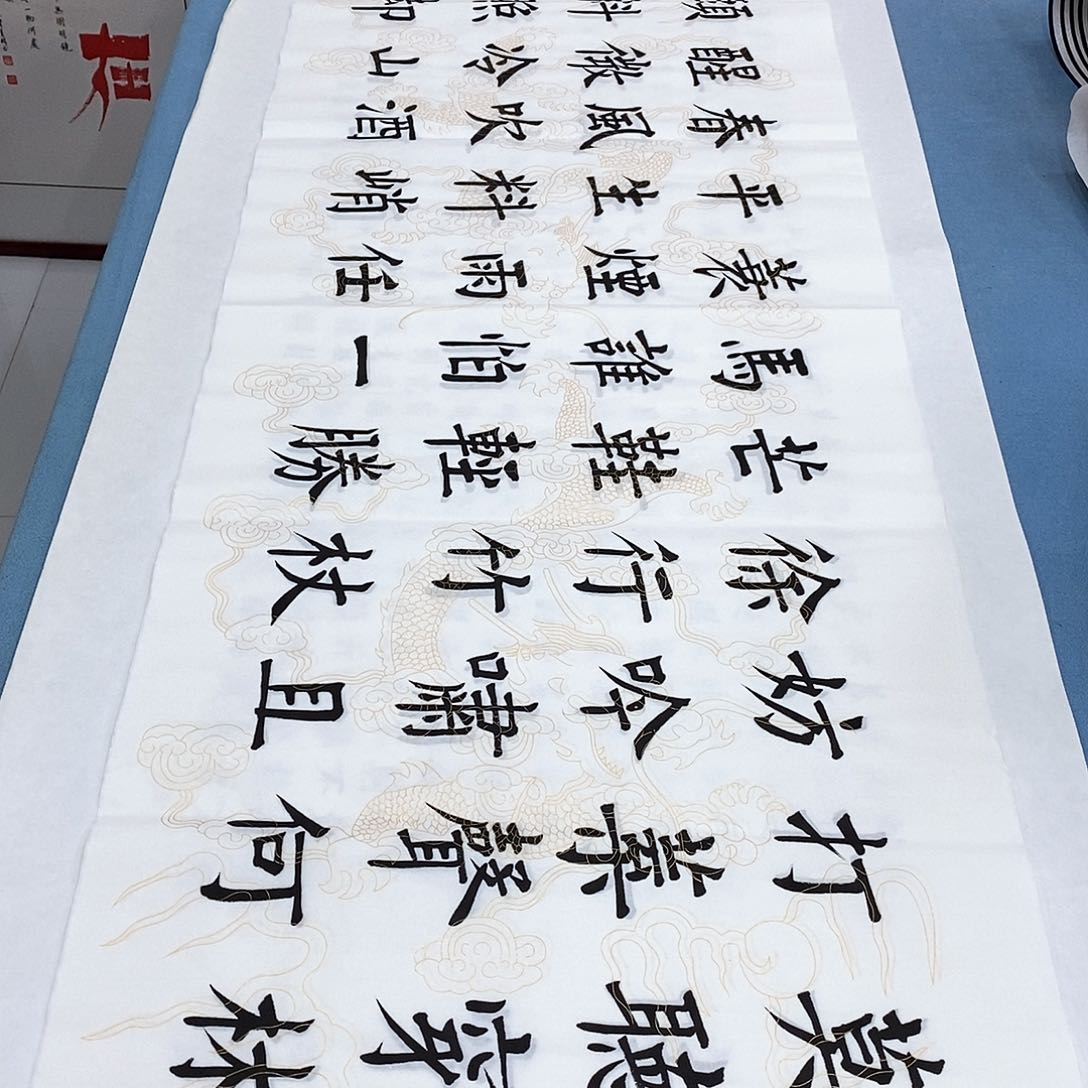 莫聽穿林
打葉聲何
妨吟嘯且
徐行竹杖
芒鞋輕勝
馬誰怕一
蓑煙雨任
平生料峭
春風吹酒
醒微冷山
頭斜照卻